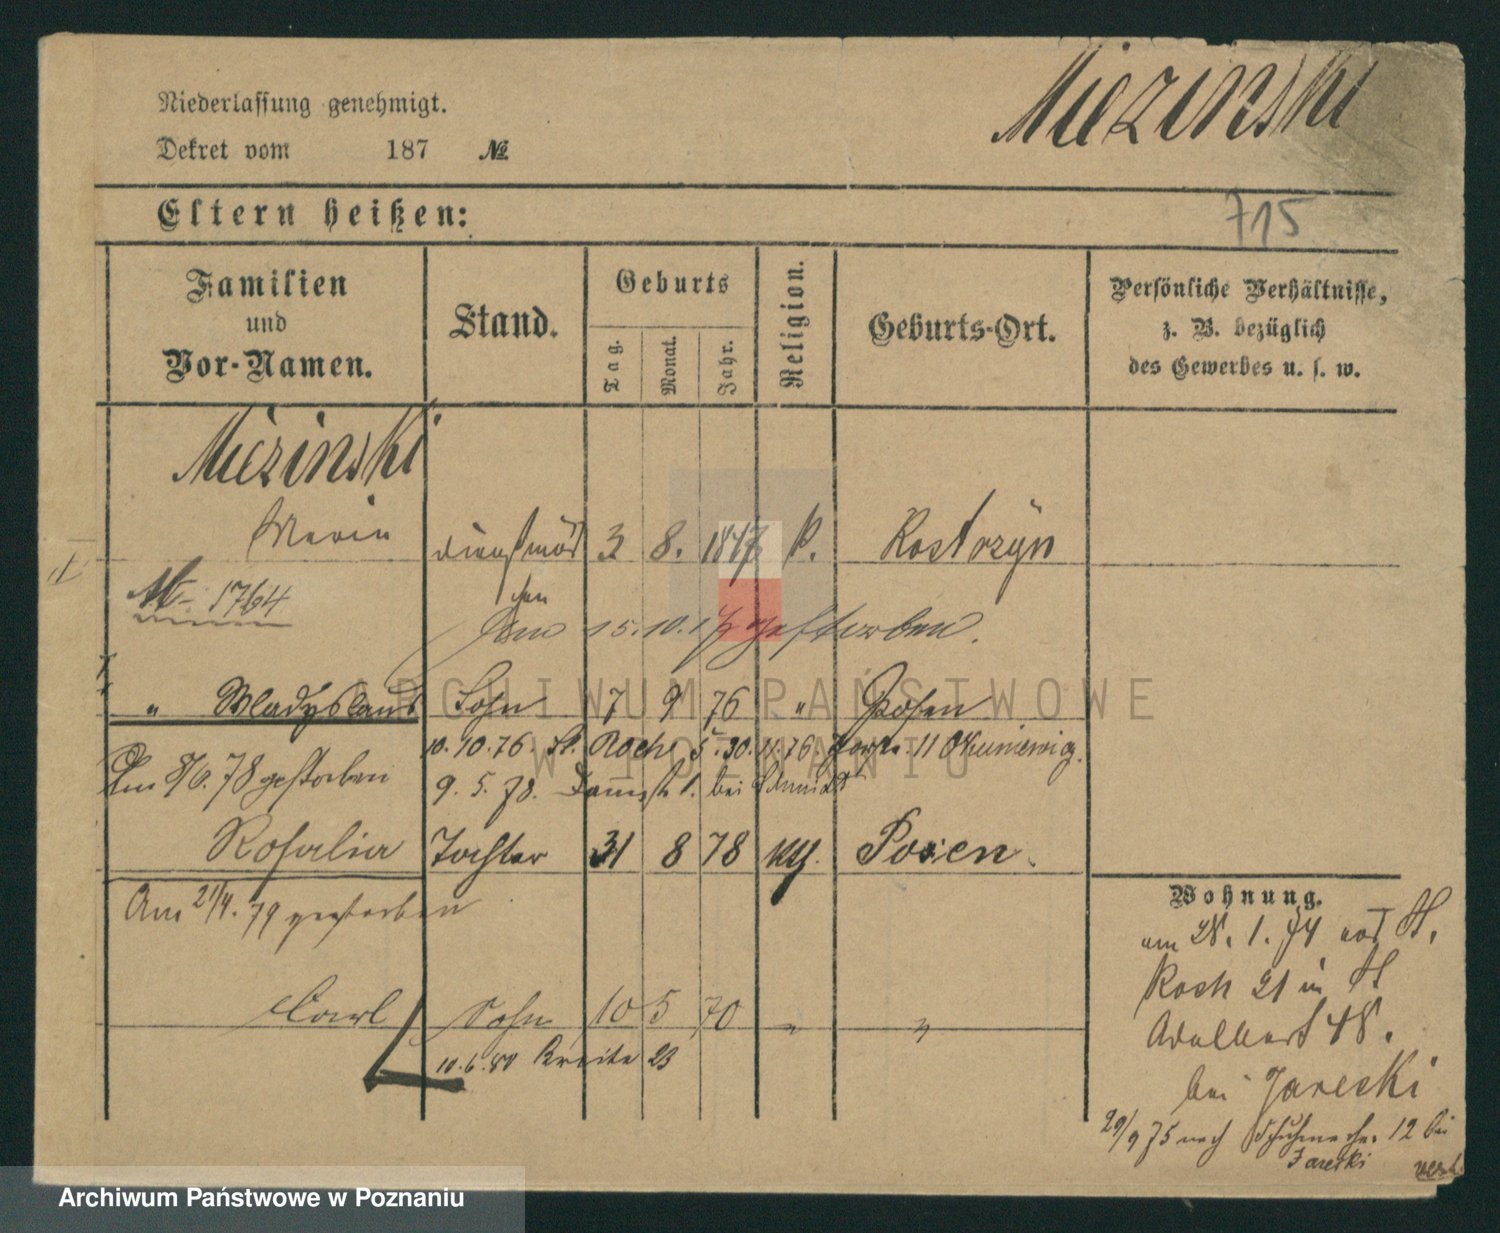 Niederlassung genehmigt.
Dekret vom 187 №
Miezinski
Eltern heißen:
715
Familien
und
Vor-Namen.
Stand.
Geburts
Tag.
Monat.
Jahr.
Religion.
Geburts-Ort.
Persönliche Verhältnisse,
z. B. bezüglich
des Gewerbes u. s. w.
Miezinski
Maria dienstmäd 3 8. 1847 k. Kostrzyn
chen
1764
15. 10. gestorben.
" Wladyslaus Sohn 7 9 76 " Posen
10. 10. 76. St. Roch 5. 30. 11. 76 11 Okuniewicz.
Am 8/6. 78 gestorben
9. 5. 78. Dammstr. 1. bei Schmidt
Rosalia Tochter 31 8 78 kth. Posen.
Am 21/4. 79 gestorben
Carl Sohn 10 5 70 " "
10. 6. 80 Breite 23
Wohnung.
am 28. 1. 74 von St.
Roch 21 in St
Adalbert 48.
bei Jareski
29/9 75 nach Schuhmacher 12 bei
Jareski
ARCHIWUM PAŃSTWOWE
W POZNANIU
Archiwum Państwowe w Poznaniu